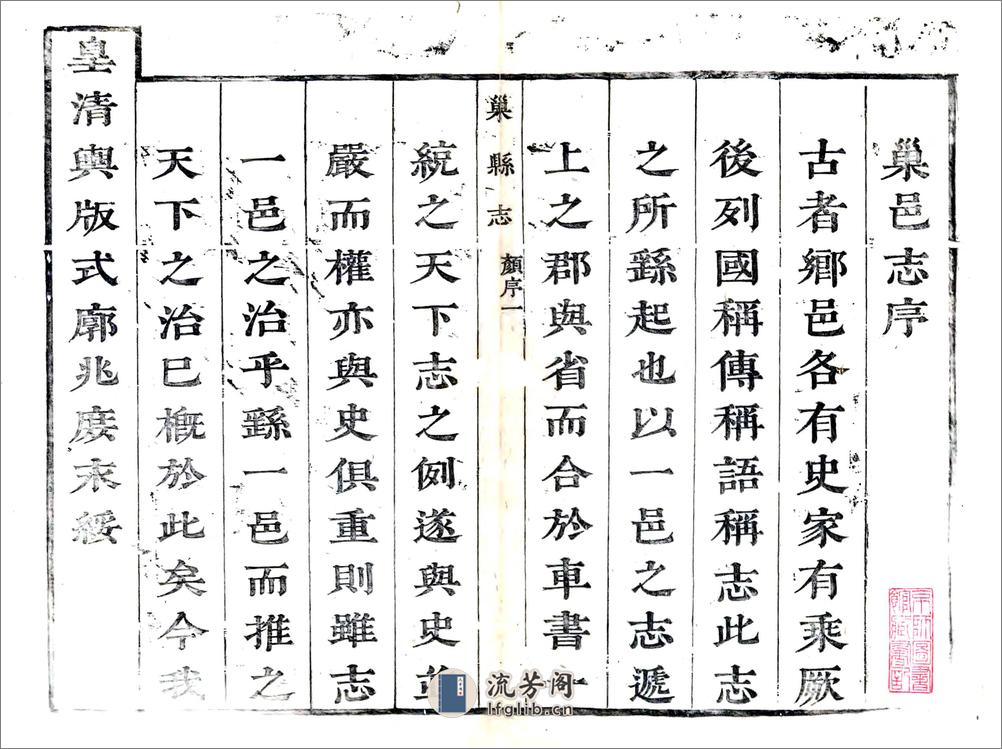 巢邑志序
古者鄉邑各有史家有乘厥
後列國稱傳稱語稱志此志
之所繇起也以一邑之志遞
上之郡與省而合於車書
巢縣志
顏序一
統之天下志之例遂與史並
嚴而權亦與史俱重則雖志
一邑之治乎繇一邑而推之
天下之治已概於此矣今我
皇清輿版式廓兆庶來綏
京師圖書
館藏書記
流芳阁
lfglib.cn